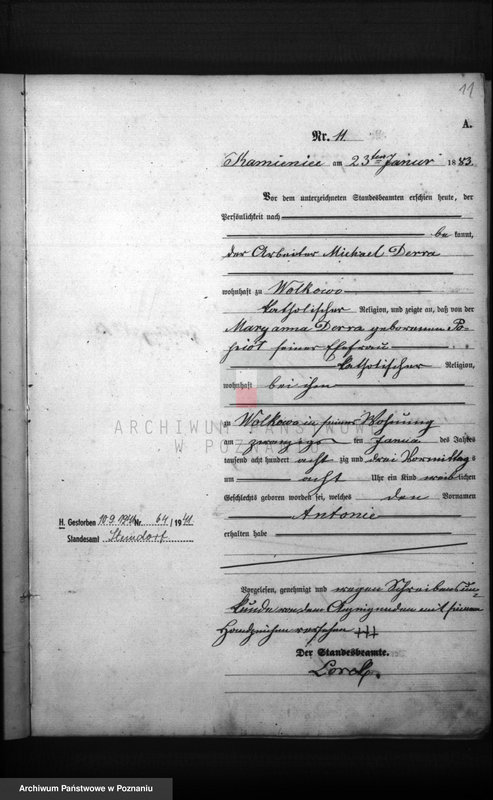 11
A.
Nr. 11.
Kamieniec am 23ten Januar 1883.
Vor dem unterzeichneten Standesbeamten erschien heute, der
Persönlichkeit nach
be kannt,
der Arbeiter Michael Derra
wohnhaft zu Wolkowo
katholischer Religion, und zeigte an, daß von der
Maryanna Derra geborenen
seiner Ehefrau
katholischer Religion,
wohnhaft bei ihm
zu Wolkowo in seiner Wohnung
am zwanzigs ten Januar des Jahres
tausend acht hundert acht zig und drei Vormittags
um acht Uhr ein Kind weiblichen
Geschlechts geboren worden sei, welches den Vornamen
Antonie
erhalten habe
H. Gestorben 10.9.1941 Nr. 64/1941
Standesamt Steindorf
Vorgelesen, genehmigt und wegen Schreibensun-
kunde von dem Anzeigenden mit seinem
Handzeichen versehen +++
Der Standesbeamte.
ARCHIWUM PAŃSTWOWE
W POZNANIU
Archiwum Państwowe w Poznaniu